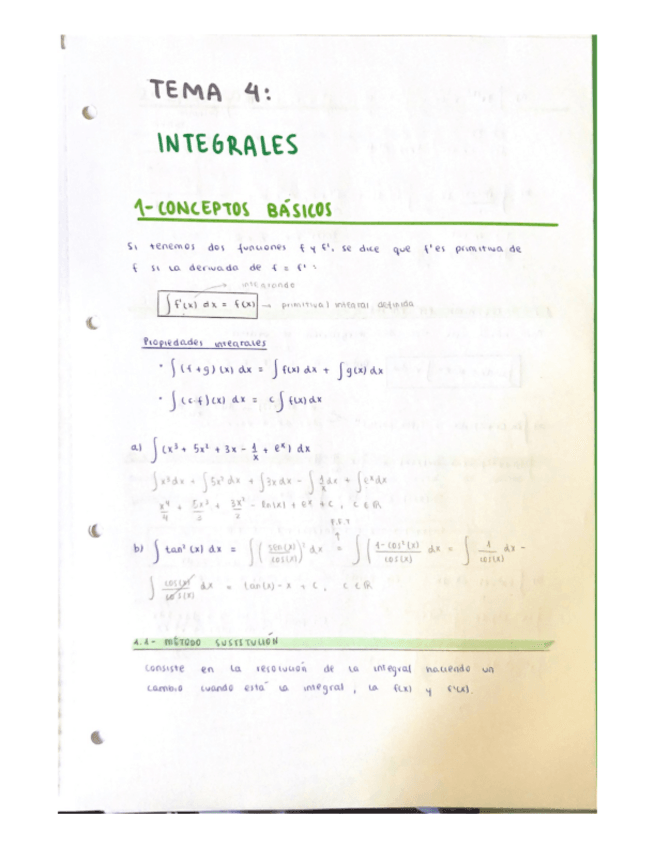 TEMA 4:
INTEGRALES
1- CONCEPTOS BÁSICOS
Si tenemos dos funciones f y f', se dice que f' es primitiva de
f si la derivada de f = f' :
integrando
∫ f'(x) dx = f(x) → primitiva / integral definida
Propiedades integrales
· ∫ (f + g) (x) dx = ∫ f(x) dx + ∫ g(x) dx
· ∫ (c·f) (x) dx = c ∫ f(x) dx
a) ∫ (x³ + 5x² + 3x - 1/x + eˣ) dx
∫ x³ dx + ∫ 5x² dx + ∫ 3x dx - ∫ 1/x dx + ∫ eˣ dx
x⁴/4 + 5x³/3 + 3x²/2 - ln(x) + eˣ + c , c ∈ ℝ
b) ∫ tan² (x) dx = ∫ (sen(x)/cos(x))² dx = ∫ (1-cos²(x)/cos(x) dx = ∫ 1/cos(x) dx -
∫ cos(x)/cos(x) dx = tan(x) - x + c , c ∈ ℝ
1.1- MÉTODO SUSTITUCIÓN
consiste en la resolución de la integral haciendo un
cambio cuando está la integral , la f(x) y f'(x).